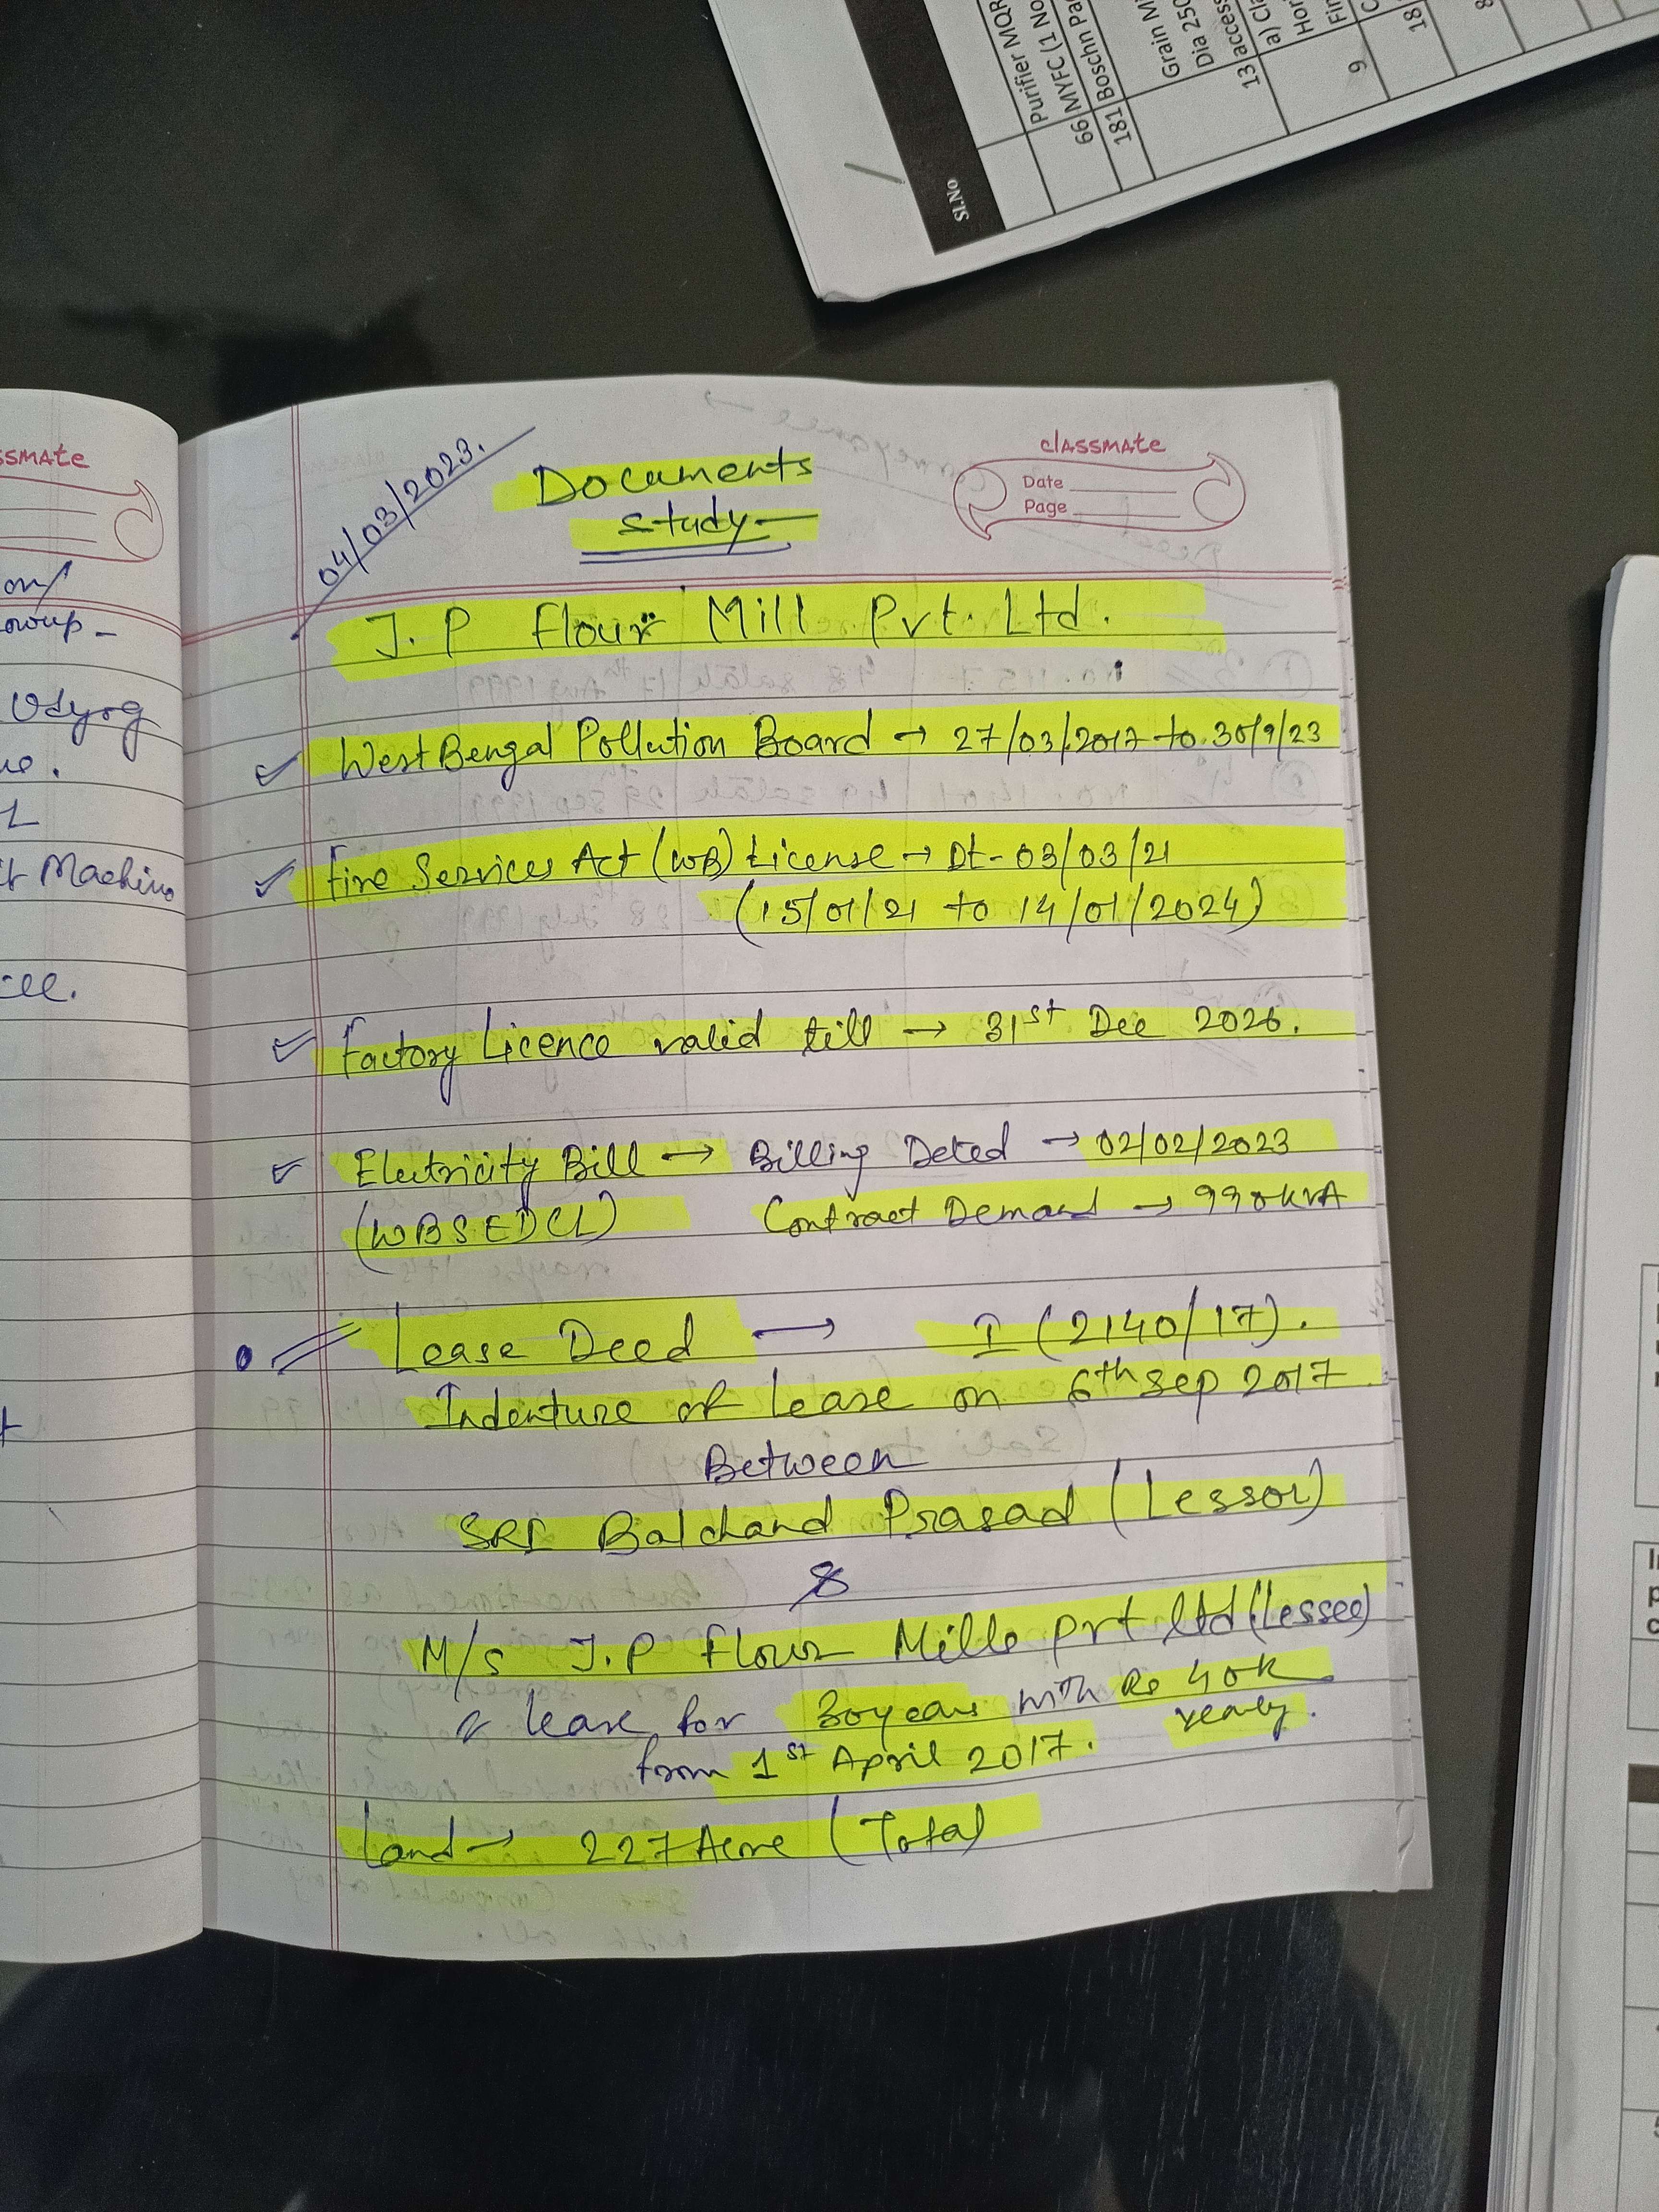 Sl.No
Purifier MQR
66 MYFC (1 No
181 Boschn Pa
Grain Mi
Dia 250
13 access
a) Cl
9 Hor
Fin
18
ssmate
on/
Udyog
L
Machine
classmate
Date
Page
04/03/2023.
Documents
study—
J. P Flour Mill Pvt. Ltd.
West Bengal Pollution Board → 27/03/2017 to 30/9/23
Fire Services Act (WB) License → Dt- 03/03/21
(15/01/21 to 14/01/2024)
Factory Licence valid till → 31st Dec 2026.
Electricity Bill → Billing Deted → 02/02/2023
(WBSEDCL) Contract Demand → 990KVA
Lease Deed → I (2140/17).
Indenture of lease on 6th Sep 2017
Between
SRI Balchand Prasad (Lessor)
&
M/s J.P Flour Mills Pvt ltd (Lessee)
lease for 30 years with Rs 40K
yearly.
from 1st April 2017.
Land → 227 Acre (Total)